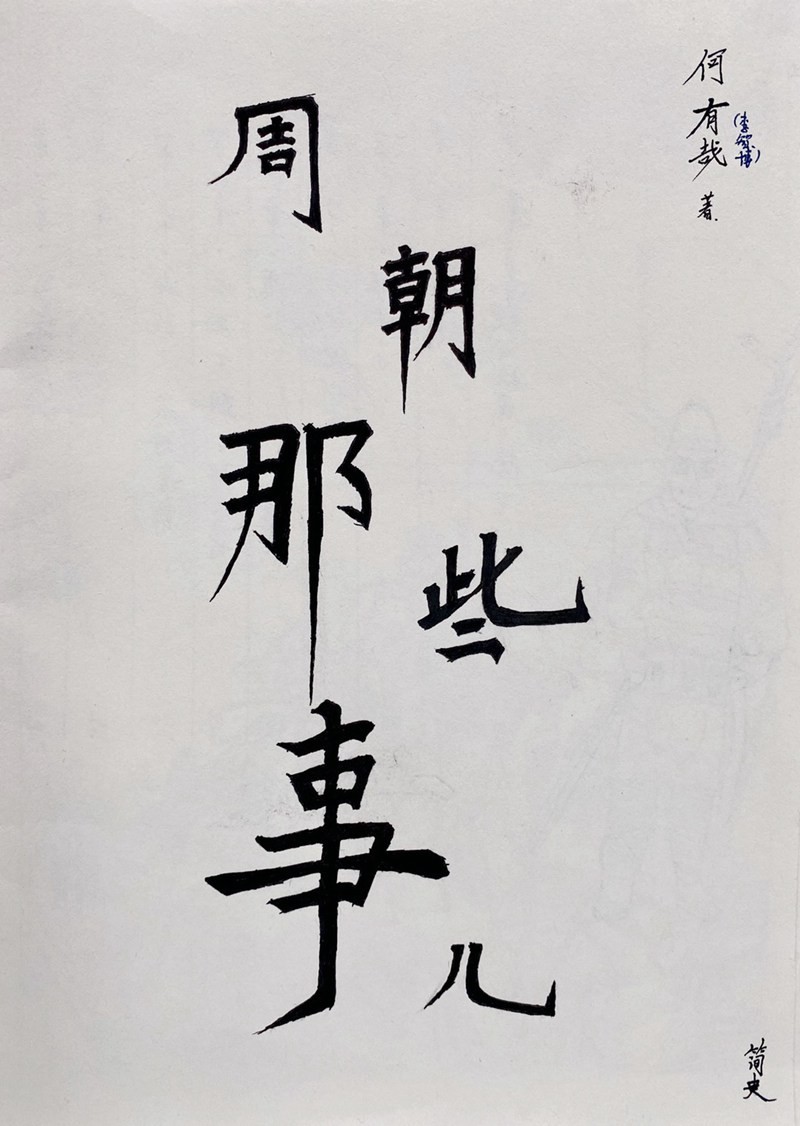 周朝那些事儿
何有哉 著
简史